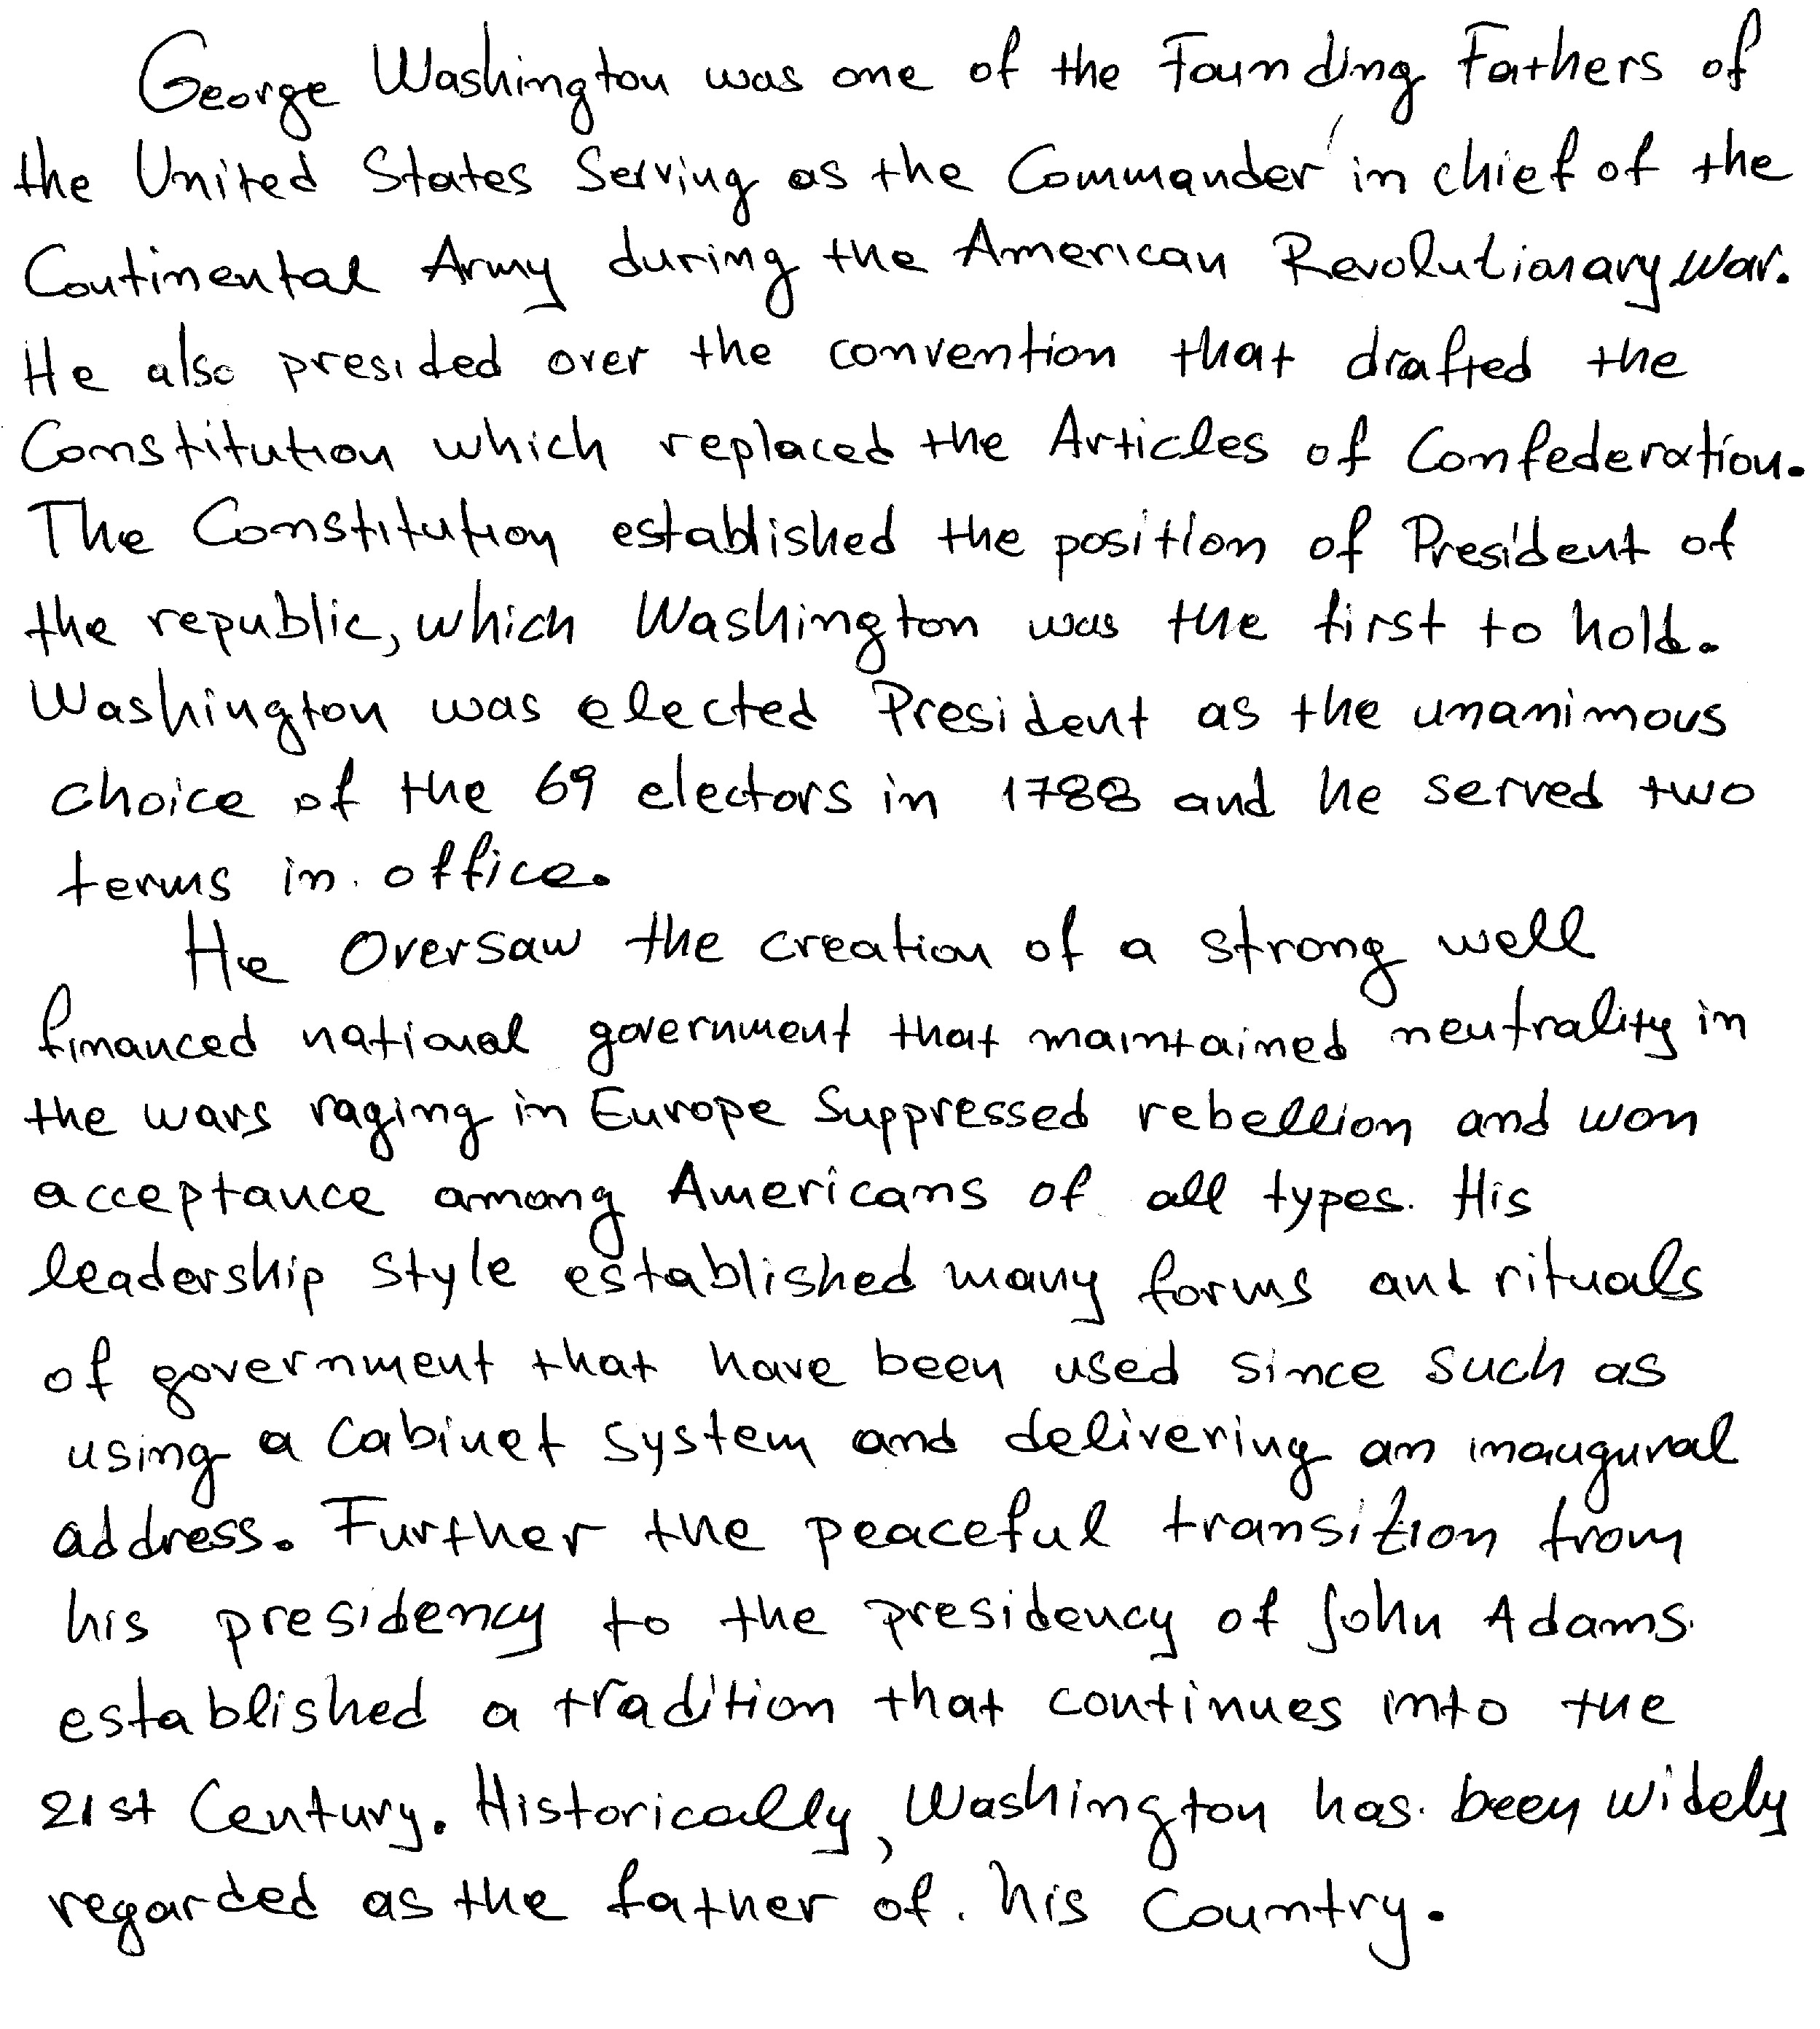 George Washington was one of the Founding Fathers of
the United States Serving as the Commander in chief of the
Continental Army during the American Revolutionary war.
He also presided over the convention that drafted the
Constitution which replaced the Articles of Confederation.
The Constitution established the position of President of
the republic, which Washington was the first to hold.
Washington was elected President as the unanimous
choice of the 69 electors in 1788 and he served two
terms in office.
He Oversaw the creation of a strong well
financed national government that maintained neutrality in
the wars raging in Europe Suppressed rebellion and won
acceptance among Americans of all types. His
leadership style established many forms and rituals
of government that have been used since such as
using a cabinet system and delivering an inaugural
address. Further the peaceful transition from
his presidency to the presidency of John Adams
established a tradition that continues into the
21st Century. Historically, Washington has been widely
regarded as the father of his Country.